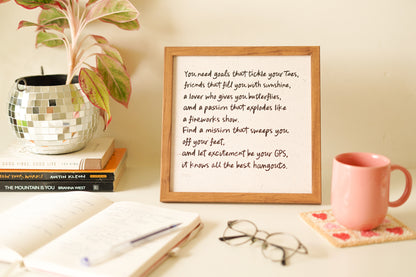 You need goals that tickle your toes,
friends that fill you with sunshine,
a lover who gives you butterflies,
and a passion that explodes like
a fireworks show.
Find a mission that sweeps you
off your feet,
and let excitement be your GPS,
it knows all the best hangouts.
AUSTIN KLEON
THE MOUNTAIN IS YOU BRIANNA WIEST